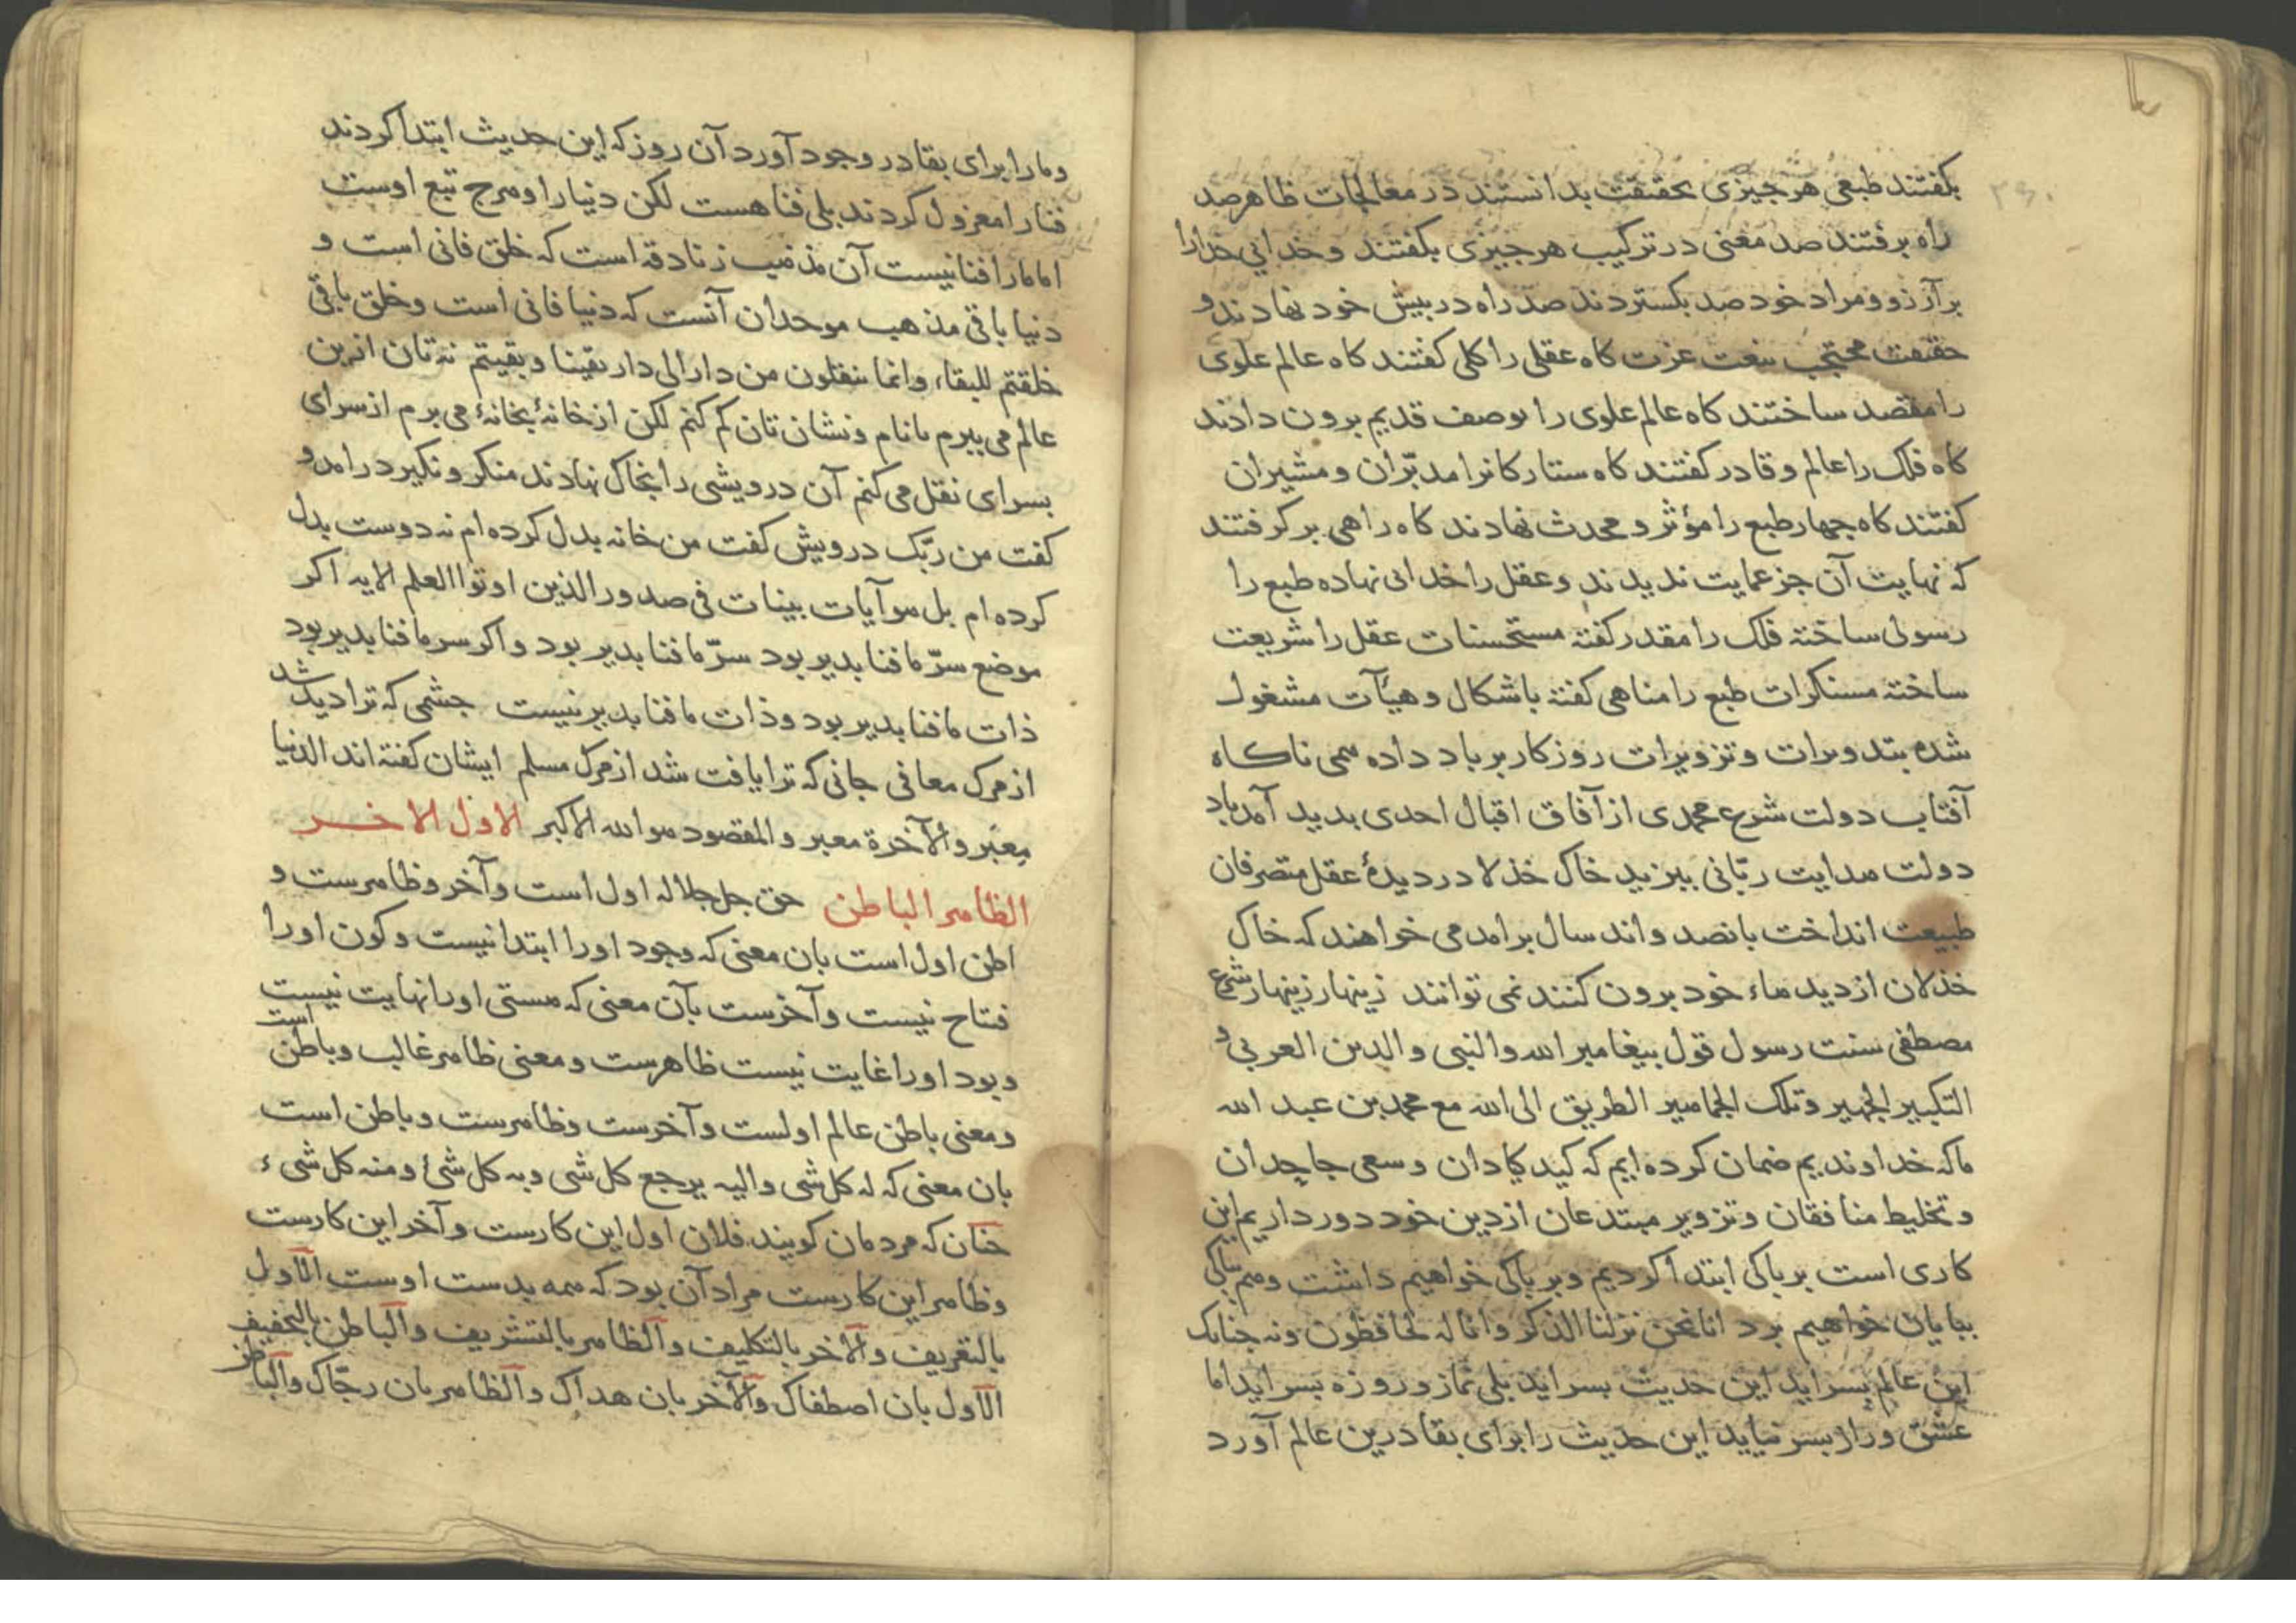 بکفتند طبعی هر جیزی بحقیقت بدانستند در معالجات ظاهر صد
راه برفتند صد معنی در ترکیب هر جیزی بکفتند و خدایی خدارا
بر آرزو و مراد خود صد بکستردند صد راه در بیش خود نهادند و
حقیقت محتجب بنعت عزت کاه عقلی را کلی کفتند کاه عالم علوی
را مقصد ساختند کاه عالم علوی را بوصف قدیم برون دادند
کاه فلک را عالم و قادر کفتند کاه ستارکانرا مدبّران و مشیران
کفتند کاه جهار طبع را مؤثر و محدث نهادند کاه راهی برکرفتند
که نهایت آن جز عمایت ندیدند و عقل را خدائی نهاده طبع را
رسولی ساخته فلک را مقدر کفته مستحسنات عقل را شریعت
ساخته مستنکرات طبع را مناهی کفته باشکال و هیآت مشغول
شده بتدویرات و تزویرات روزکار برباد داده همی ناکاه
آفتاب دولت شرع محمدی از آفاق اقبال احدی بدید آمد باد
دولت هدایت ربّانی ببزید خاک خذلان در دیدهٔ عقل متصرفان
طبیعت انداخت بانصد و اند سال برامد می خواهند که خاک
خذلان از دیدهاء خود برون کنند نمی توانند زینهار زینهار شرع
مصطفی سنت رسول قول بیغامبر الله والنبی والدین العربی و
التکبیر الجهیر وتلک الجماهیر الطریق الی الله مع محمد بن عبد الله
ما که خداوندیم ضمان کرده ایم که کید کیادان و سعی جاحدان
و تخلیط منافقان و تزویر مبتدعان از دین خود دور داریم این
کاری است بر باکی ابتدا کردیم و بر باکی خواهیم داشت و هم بباکی
ببایان خواهیم برد انا نحن نزلنا الذکر وانا له لحافظون ونه جنانک
این عالم بسر اید این حدیث بسر اید بلی نماز و روزه بسر اید اما
عشق ورا بسر نیاید این حدیث را برای بقا درین عالم آورد
و مارا برای بقا در وجود آورد آن روز که این حدیث ابتدا کردند
فنا را معزول کردند بلی فنا هست لکن دنیا را و هرج تبع اوست
اما مارا فنا نیست آن مذهب زنادقه است که خلق فانی است و
دنیا باقی مذهب موحدان آنست که دنیا فانی است و خلق باقی
خلقتم للبقاء وانما تنقلون من دار الی دار بقینا وبقیتم نه تان ازین
عالم می ببرم تا نام و نشان تان کم کنم لکن از خانهٔ بخانهٔ می برم از سرای
بسرای نقل می کنم آن درویشی را بخاک نهادند منکر و نکیر درامد و
کفت من ربّک درویش کفت من خانه بدل کرده ام نه دوست بدل
کرده ام بل هو آیات بینات فی صدور الذین اوتوا العلم الایه اکر
موضع سرّ ما فنا بدیر بود سرّ ما فنا بدیر بود و اکر سر ما فنا بدیر بود
ذات ما فنا بدیر بود و ذات ما فنا بدیر نیست جشمی که ترا دید شد
از مرک معافی جانی که ترا یافت شد از مرک مسلم ایشان کفته اند الدنیا
معبر والآخرة معبر والمقصود هو الله الاکبر الاول الاخر
الظاهر الباطن حق جل جلاله اول است و آخر و ظاهرست و
اطن اول است بان معنی که وجود اورا ابتدا نیست و کون اورا
فتتاح نیست و آخرست بآن معنی که هستی اورا نهایت نیست
و بود اورا غایت نیست ظاهرست و معنی ظاهر غالب و باطن است
و معنی باطن عالم اولست و آخرست و ظاهرست و باطن است
بان معنی که له کل شی والیه یرجع کل شی وبه کل شئ ومنه کل شیء
جنان که مردمان کویند فلان اول این کارست و آخر این کارست
و ظاهر این کارست مراد آن بود که همه بدست اوست الاول
بالتعریف والآخر بالتکلیف والظاهر بالتشریف والباطن بالتخفیف
الاول بان اصطفاک والآخر بان هداک والظاهر بان رجّاک والباطن